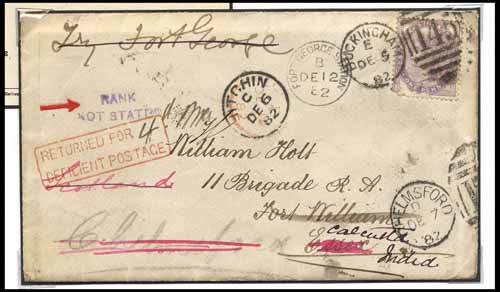 Try Fort George
RANK
NOT STATED
RETURNED FOR
DEFICIENT POSTAGE
4
HITCHIN
C
DE 6
82
FORT GEORGE
B
DE 12
82
BUCKINGHAM
E
DE 5
82
145
William Holt
Scotland
11 Brigade R. A.
Fort William
Essex
Calcutta
India
CHELMSFORD
DE 7
82